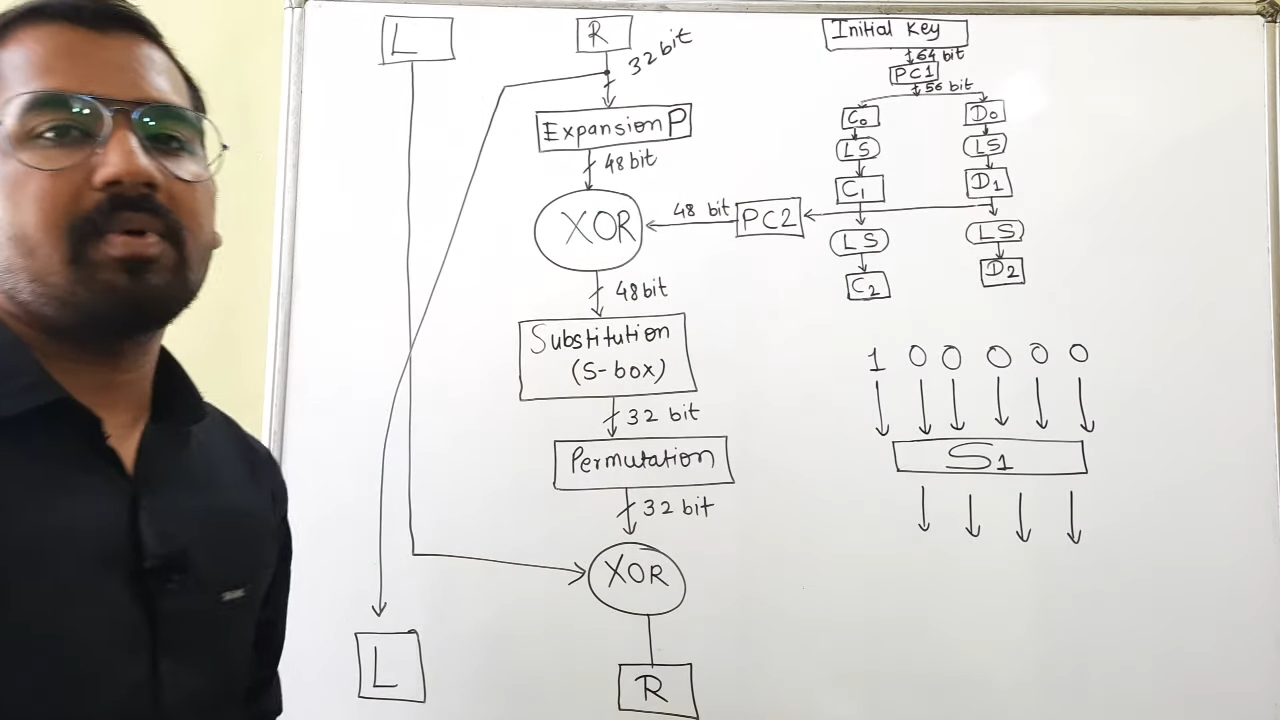 L
R
32 bit
Expansion P
48 bit
XOR
48 bit
Substitution
(S-box)
32 bit
Permutation
32 bit
XOR
L
R
Initial Key
64 bit
PC1
56 bit
C0
D0
LS
LS
C1
D1
48 bit
PC2
LS
LS
C2
D2
1 0 0 0 0 0
S1